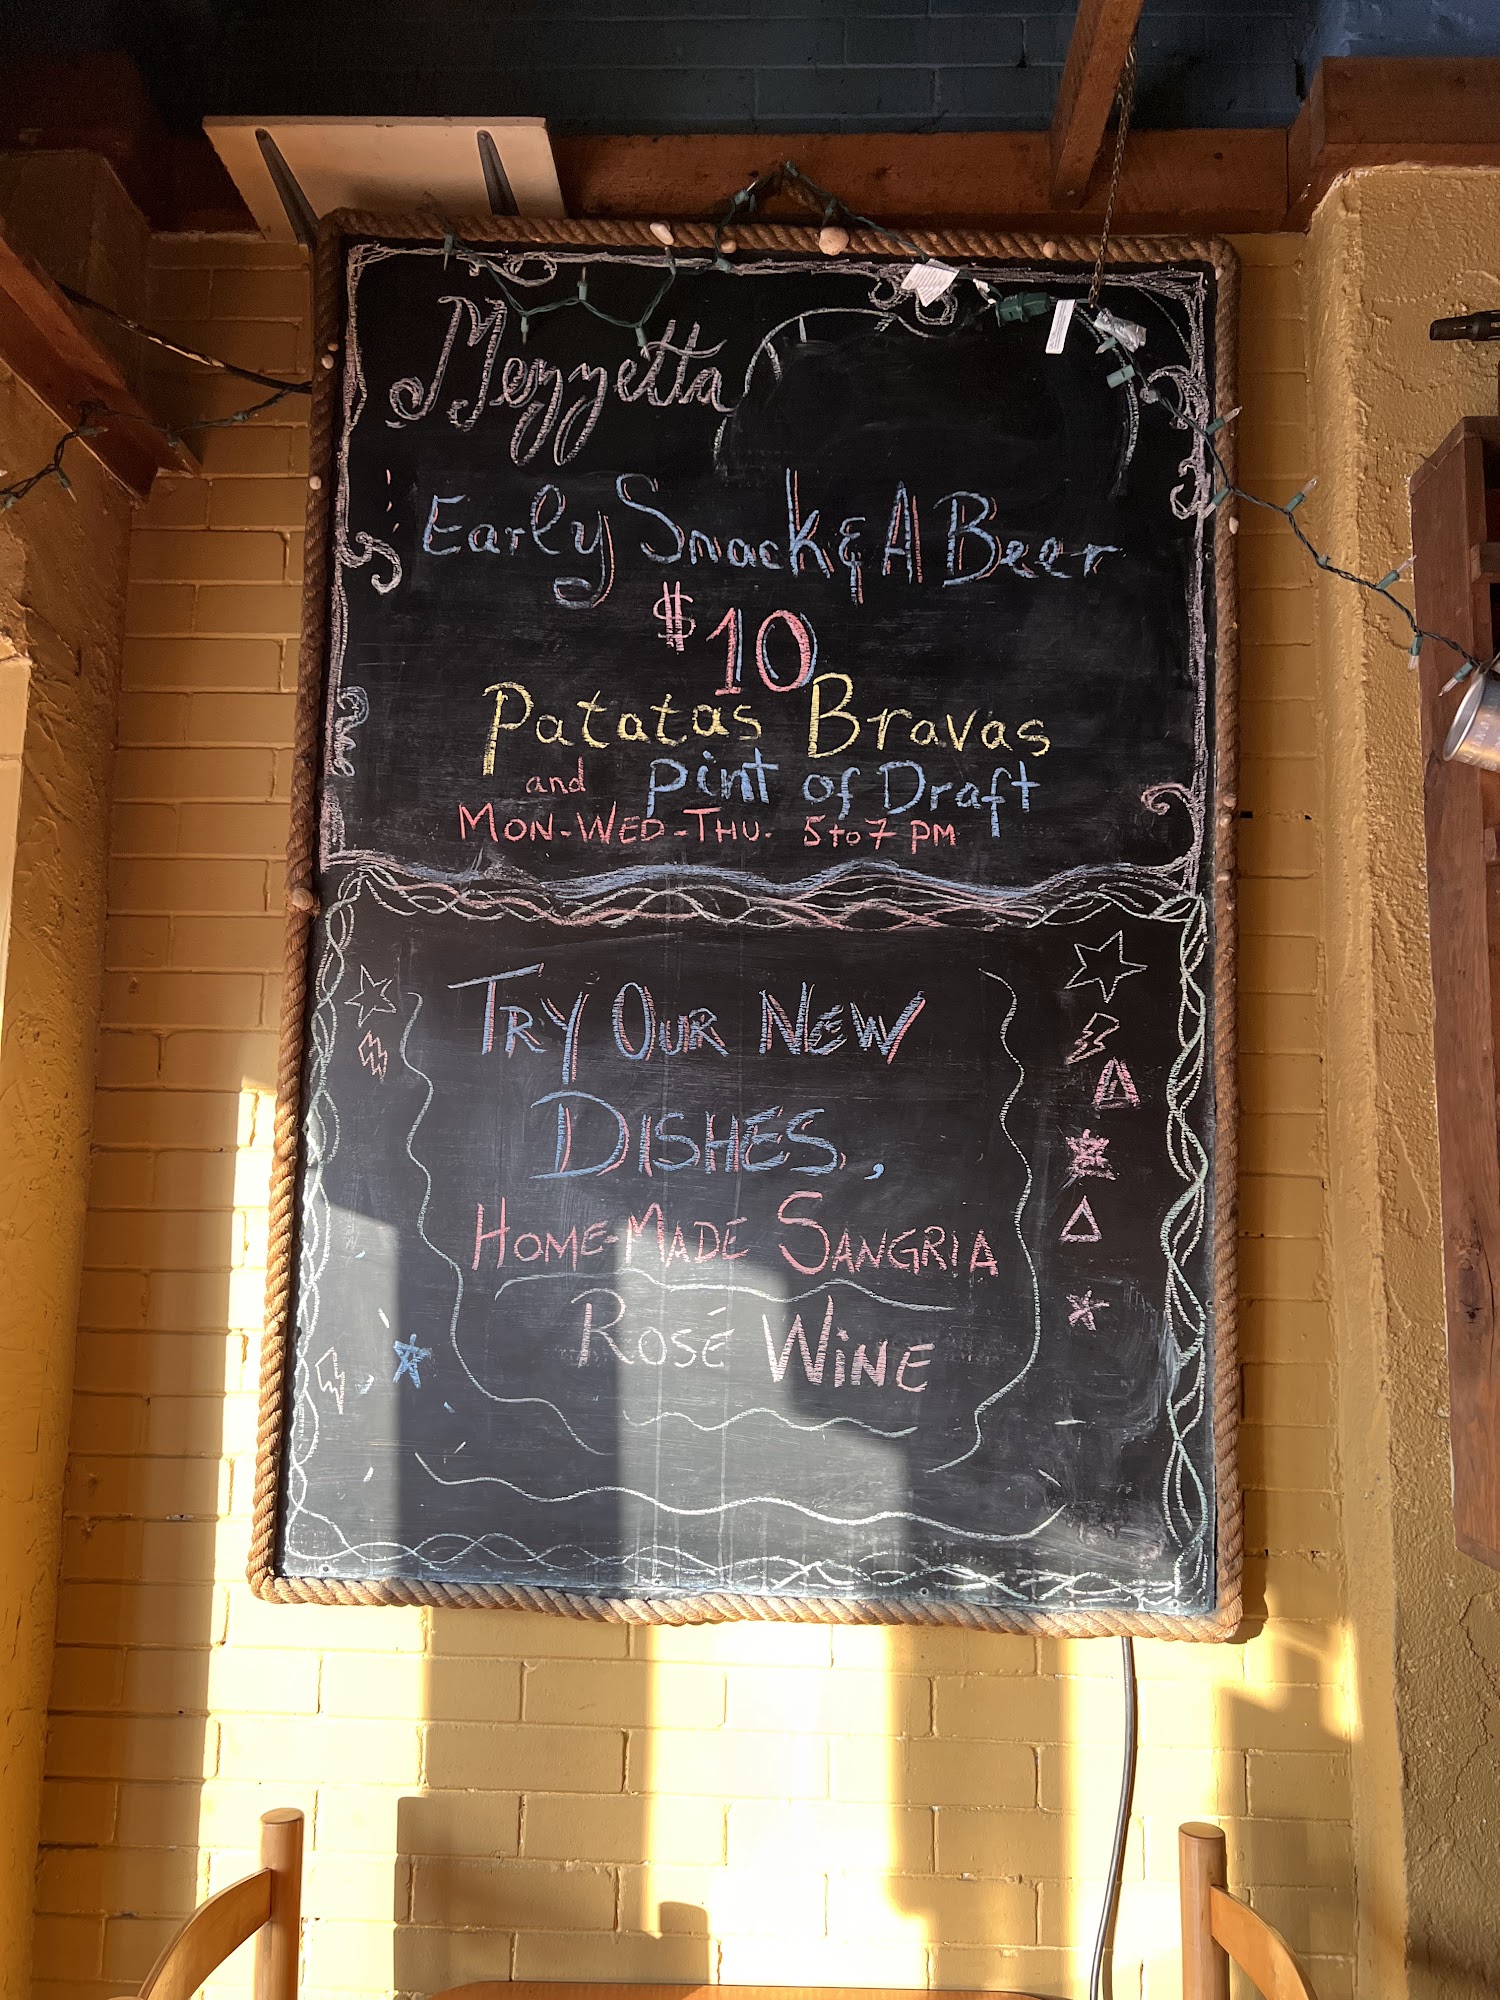 Mezzetta
Early Snack & A Beer
$10
Patatas Bravas
and pint of Draft
MON-WED-THU. 5to7 PM
TRY OUR NEW
DISHES,
HOME-MADE SANGRIA
ROSÉ WINE